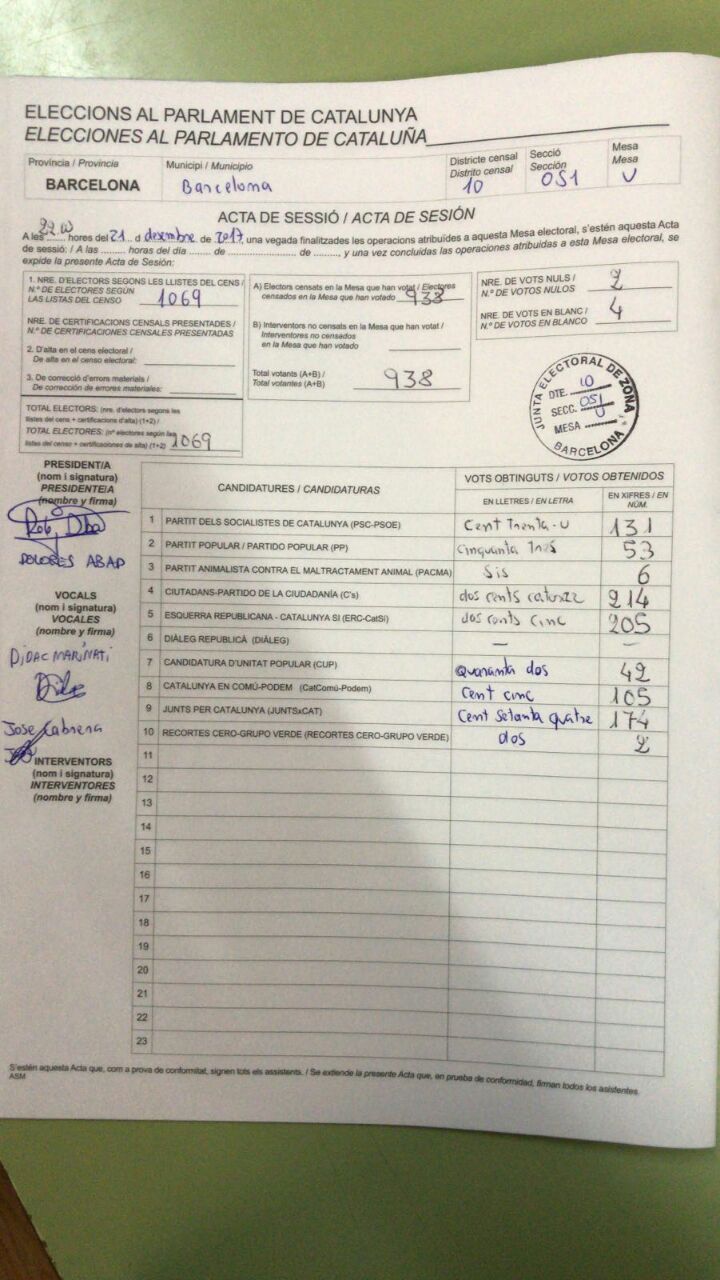 ELECCIONS AL PARLAMENT DE CATALUNYA
ELECCIONES AL PARLAMENTO DE CATALUÑA
Provincia / Provincia
BARCELONA
Municipi / Municipio
Barcelona
Districte censal
Distrito censal
10
Secció
Sección
051
Mesa
Mesa
U
ACTA DE SESSIÓ / ACTA DE SESIÓN
A les 22.00 hores del 21 d desembre de 2017, una vegada finalitzades les operacions atribuïdes a aquesta Mesa electoral, s'estén aquesta Acta
de sessió: / A las ......... horas del día ....... de .............................. de ........, y una vez concluidas las operaciones atribuidas a esta Mesa electoral, se
expide la presente Acta de Sesión:
1. NRE. D'ELECTORS SEGONS LES LLISTES DEL CENS /
N.º DE ELECTORES SEGÚN
LAS LISTAS DEL CENSO 1069
NRE. DE CERTIFICACIONS CENSALS PRESENTADES /
N.º DE CERTIFICACIONES CENSALES PRESENTADAS
2. D'alta en el cens electoral /
De alta en el censo electoral:
3. De correcció d'errors materials /
De corrección de errores materiales:
TOTAL ELECTORS: (nre. d'electors segons les
llistes del cens + certificacions d'alta) (1+2) /
TOTAL ELECTORES: (nº electores según las
listas del censo + certificaciones de alta) (1+2) 1069
A) Electors censats en la Mesa que han votat / Electores
censados en la Mesa que han votado 938
B) Interventors no censats en la Mesa que han votat /
Interventores no censados
en la Mesa que han votado
Total votants (A+B) /
Total votantes (A+B) 938
NRE. DE VOTS NULS /
N.º DE VOTOS NULOS 2
NRE. DE VOTS EN BLANC /
N.º DE VOTOS EN BLANCO 4
JUNTA ELECTORAL DE ZONA
DTE. 10
SECC. 051
MESA
BARCELONA
PRESIDENT/A
(nom i signatura)
PRESIDENTE/A
(nombre y firma)
DOLORES ABAD
VOCALS
(nom i signatura)
VOCALES
(nombre y firma)
DIDAC MARIÑATI
Jose Cabrera
INTERVENTORS
(nom i signatura)
INTERVENTORES
(nombre y firma)
CANDIDATURES / CANDIDATURAS
VOTS OBTINGUTS / VOTOS OBTENIDOS
EN LLETRES / EN LETRA
EN XIFRES / EN NÚM.
1 PARTIT DELS SOCIALISTES DE CATALUNYA (PSC-PSOE) Cent Trenta-U 131
2 PARTIT POPULAR / PARTIDO POPULAR (PP) cinquanta Tres 53
3 PARTIT ANIMALISTA CONTRA EL MALTRACTAMENT ANIMAL (PACMA) Sis 6
4 CIUTADANS-PARTIDO DE LA CIUDADANÍA (C's) dos cents catorze 214
5 ESQUERRA REPUBLICANA - CATALUNYA SI (ERC-CatSi) dos cents cinc 205
6 DIÀLEG REPUBLICÀ (DIÀLEG) — –
7 CANDIDATURA D'UNITAT POPULAR (CUP) quaranta dos 42
8 CATALUNYA EN COMÚ-PODEM (CatComú-Podem) cent cinc 105
9 JUNTS PER CATALUNYA (JUNTSxCAT) Cent setanta quatre 174
10 RECORTES CERO-GRUPO VERDE (RECORTES CERO-GRUPO VERDE) dos 2
11
12
13
14
15
16
17
18
19
20
21
22
23
S'estén aquesta Acta que, com a prova de conformitat, signen tots els assistents. / Se extiende la presente Acta que, en prueba de conformidad, firman todos los asistentes.
ASM